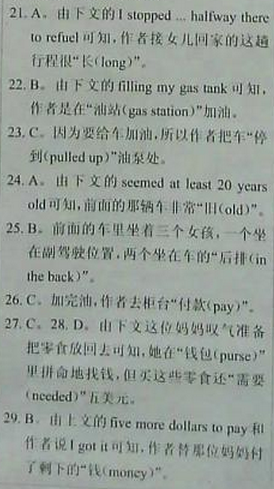 21. A。由下文的 I stopped ... halfway there
to refuel 可知,作者接女儿回家的这趟
行程很“长(long)”。
22. B。由下文的 filling my gas tank 可知,
作者是在“油站(gas station)”加油。
23. C。因为要给车加油,所以作者把车“停
到(pulled up)”油泵处。
24. A。由下文的 seemed at least 20 years
old 可知,前面的那辆车非常“旧(old)”。
25. B。前面的车里坐着三个女孩,一个坐
在副驾驶位置,两个坐在车的“后排(in
the back)”。
26. C。加完油,作者去柜台“付款(pay)”。
27. C。28. D。由下文这位妈妈叹气准备
把零食放回去可知,她在“钱包(purse)”
里拼命地找钱,但买这些零食还“需要
(needed)”五美元。
29. B。由上文的 five more dollars to pay 和
作者说 I got it 可知,作者替那位妈妈付
了剩下的“钱(money)”。